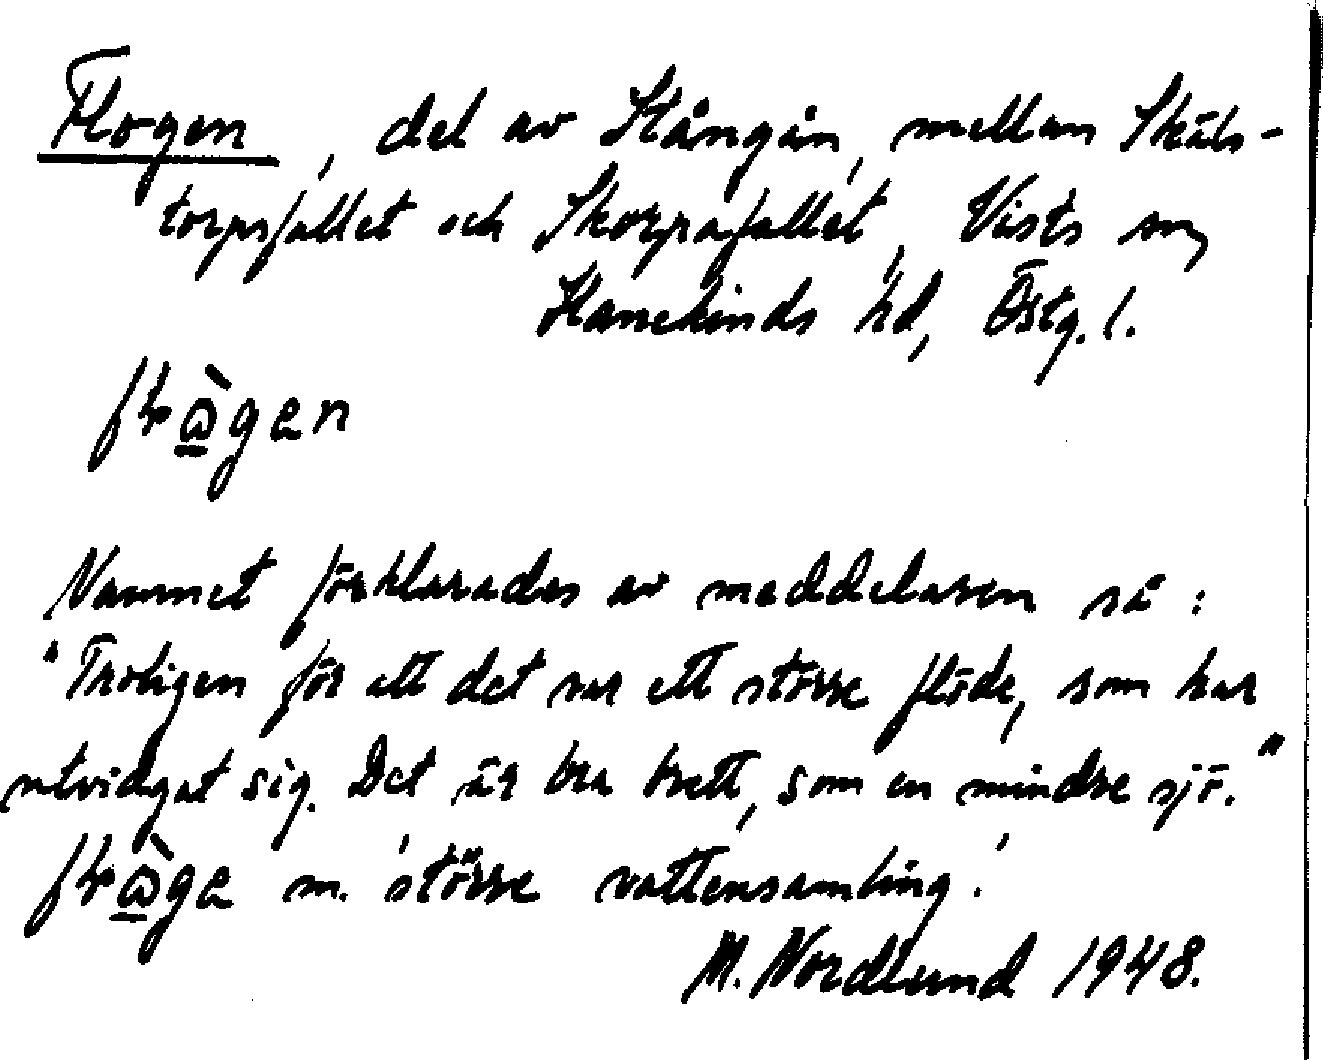 Flogen, del av Stångån, mellan Skäls-
torpsfallet och Skorpafallet, Vists sn,
Hanekinds hd, Östg. l.
Namnet förklarades av meddelaren så:
"Troligen för att det var ett större flöde, som har
utvidgat sig. Det är bra brett, som en mindre sjö."
m. 'större vattensamling'.
M. Nordlund 1948.